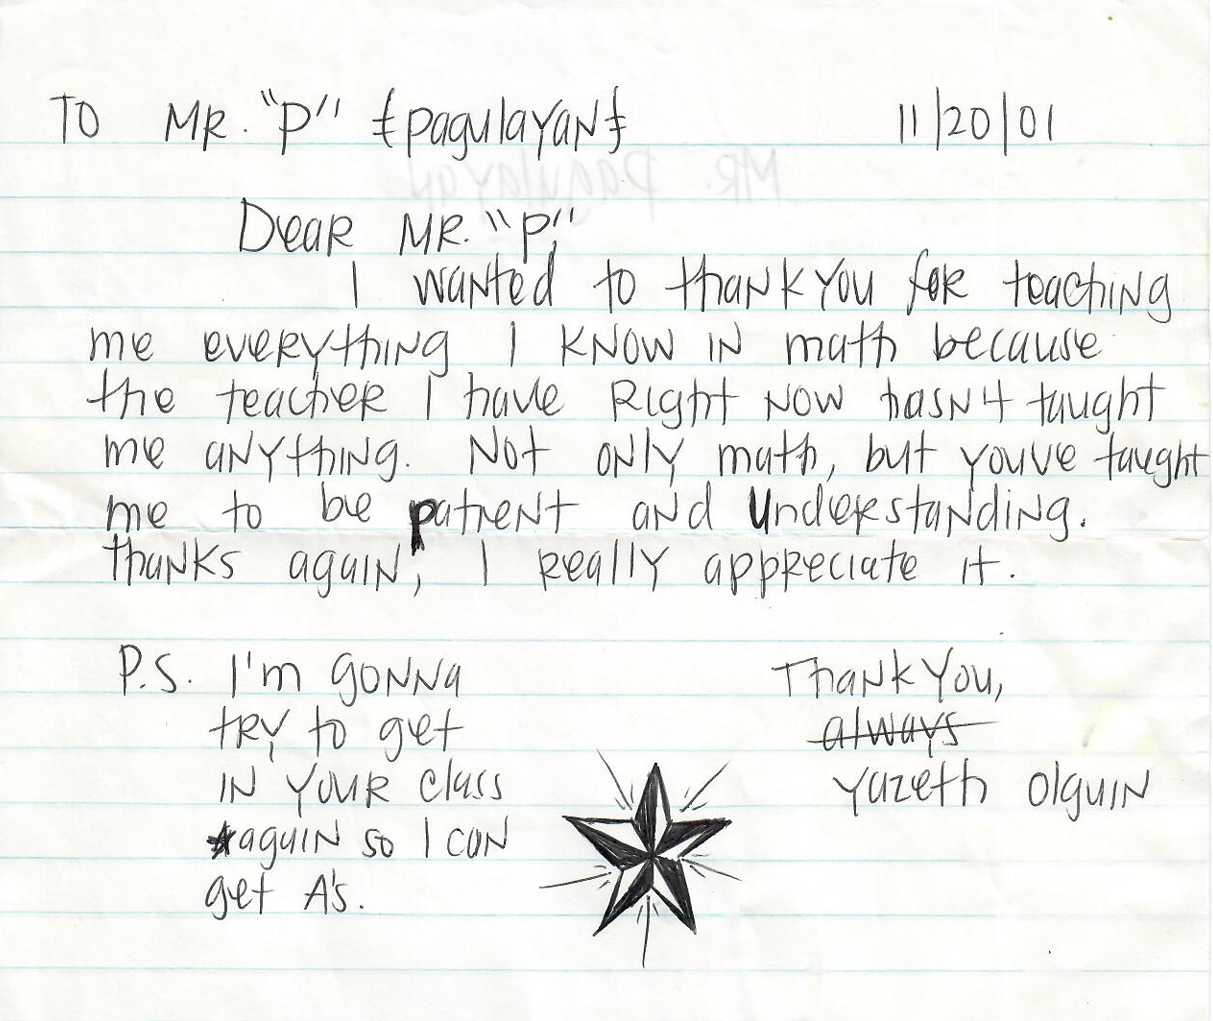 TO MR. "P" {pagulayan} 11/20/01
Dear MR. "P",
I wanted to thank you for teaching
me everything I know in math because
the teacher I have Right now hasn't taught
me anything. Not only math, but youve taught
me to be patient and understanding.
thanks again, I really appreciate it.
P.S. I'm gonna
try, to get
in your class
again so I can
get A's.
Thank You,
always
Yazeth Olguin
MR. Pagulayan